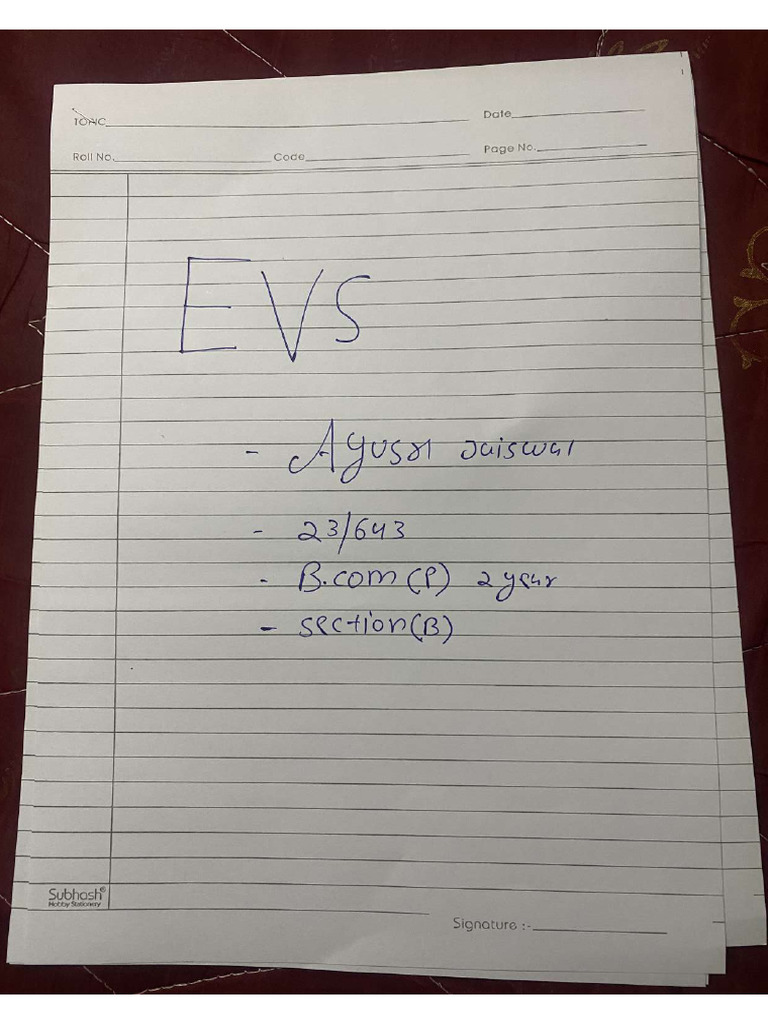 TOPIC
Date
Roll No.
Code
Page No.
EVS
- Ayush Jaiswal
- 23/643
- B.com (P) 2 year
- section (B)
Subhash®
Hobby Stationery
Signature :-